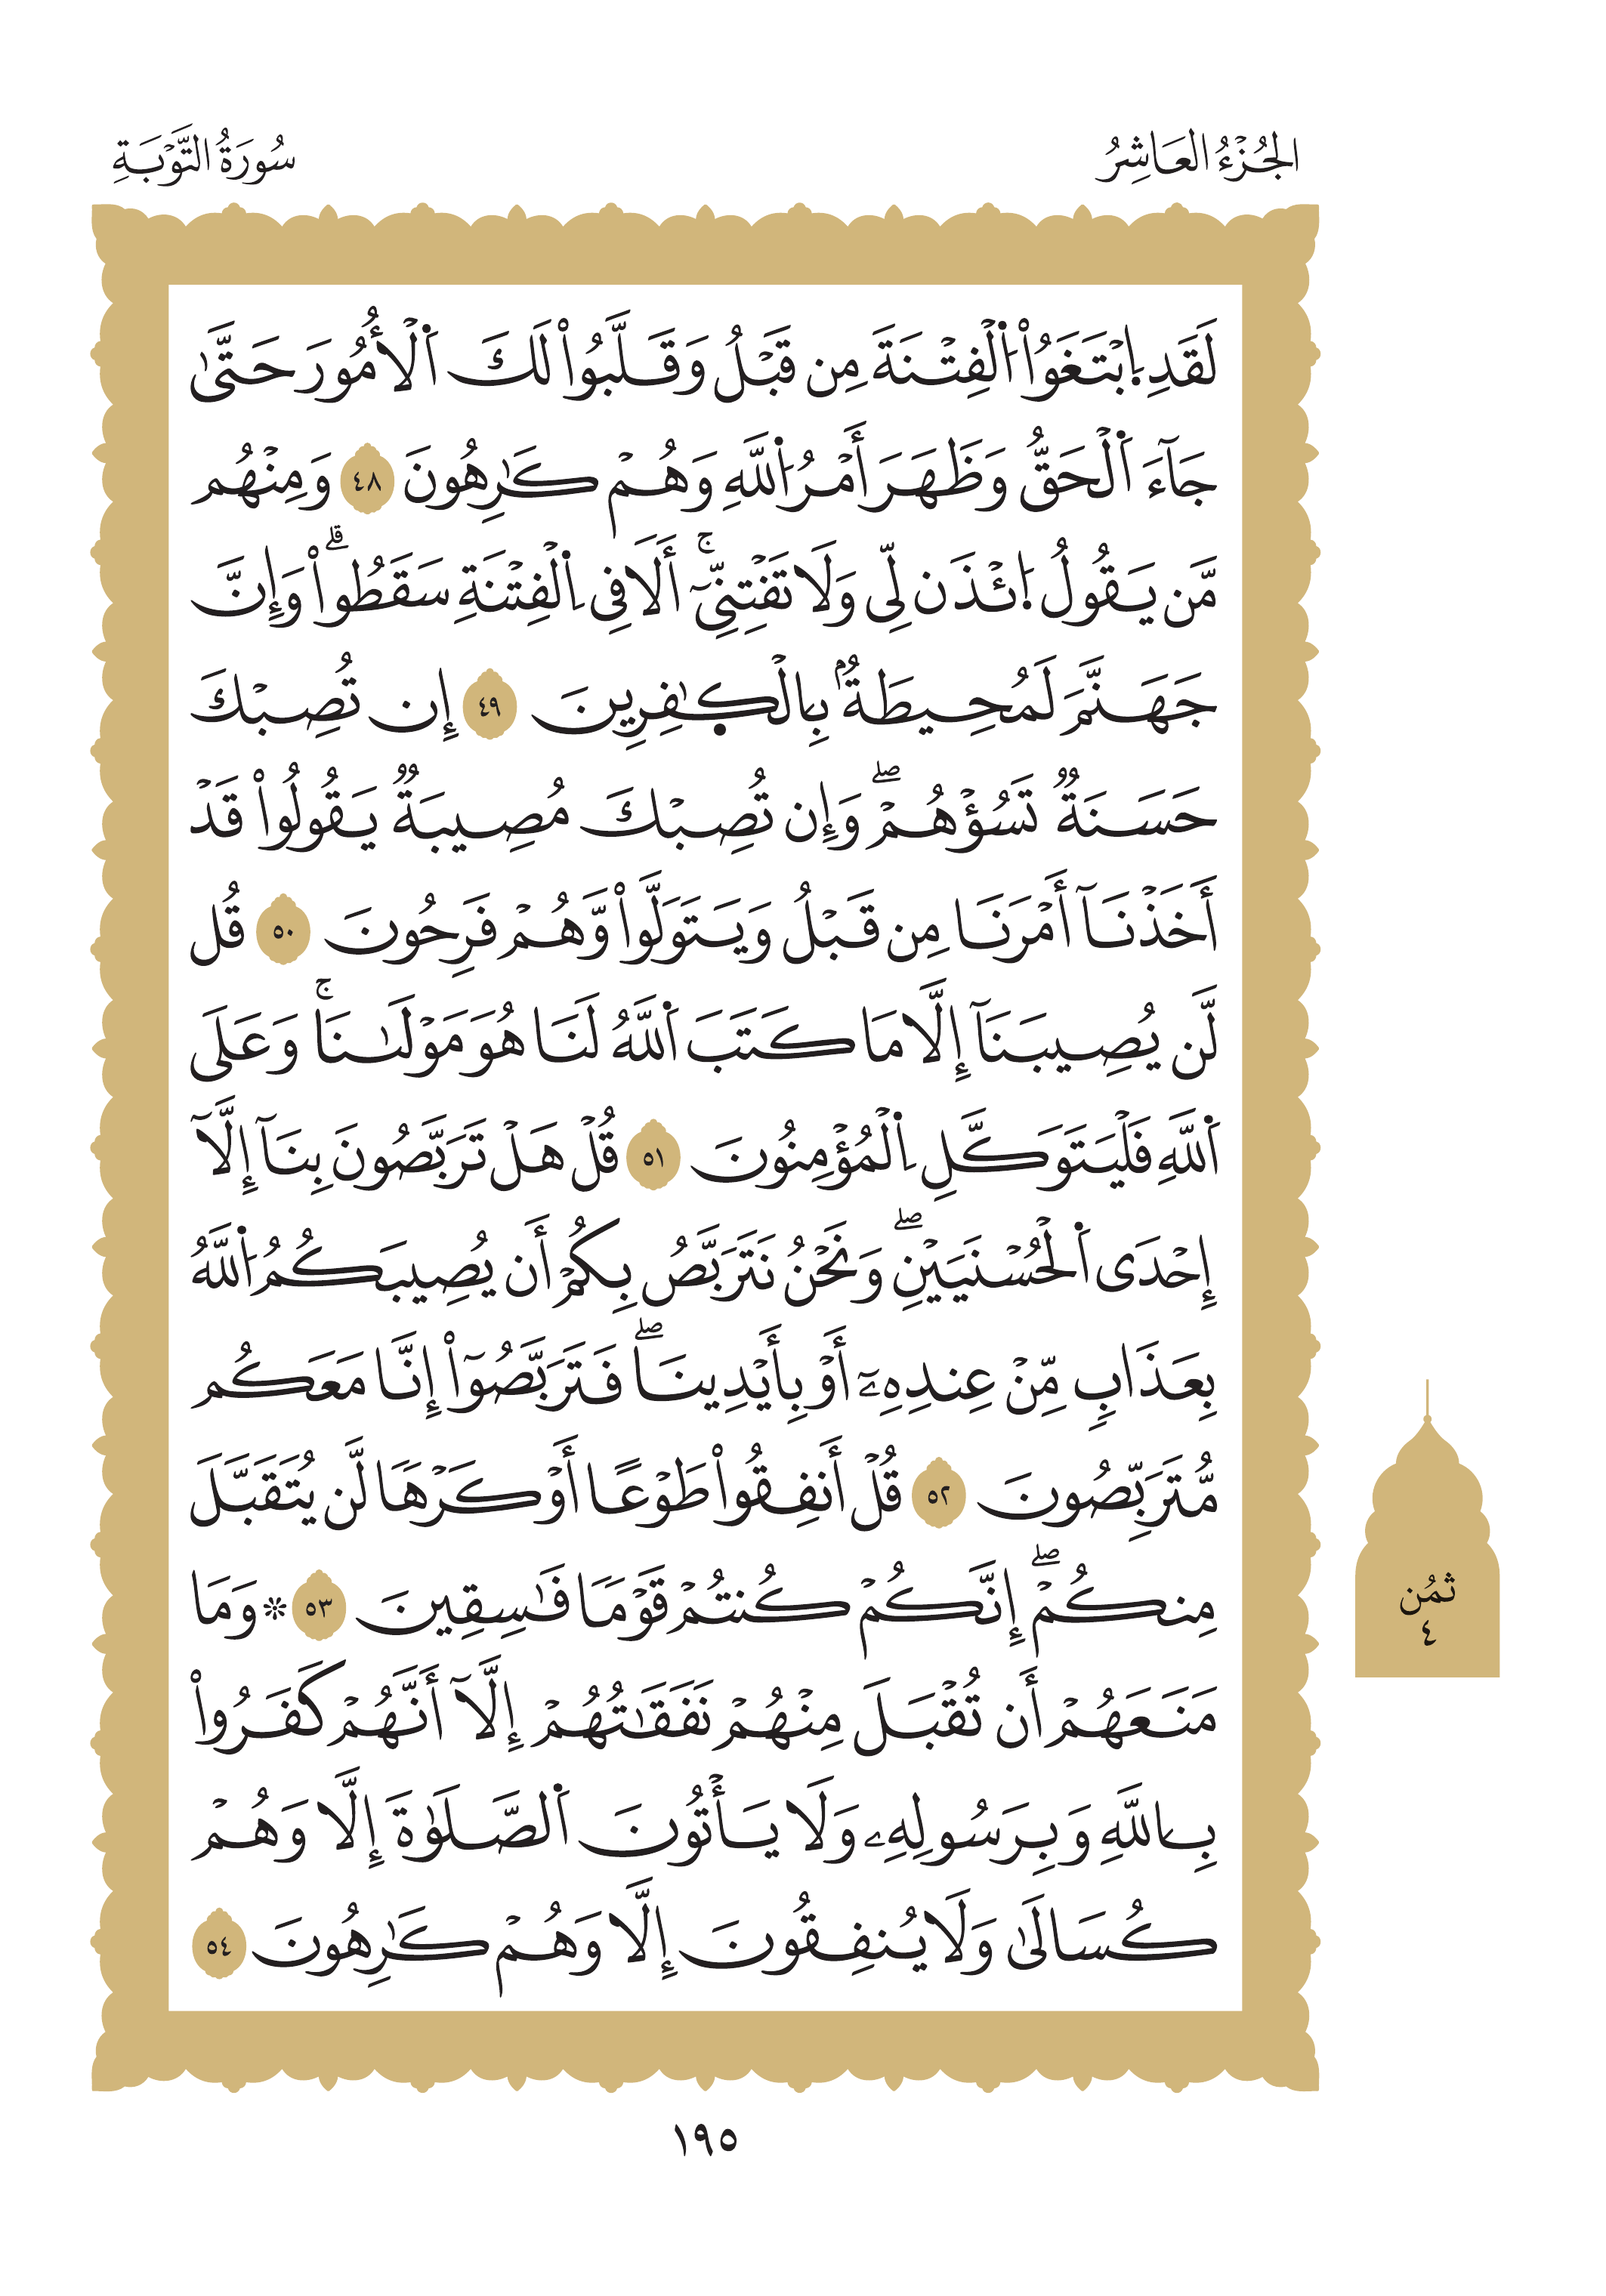 الجُزْءُ العَاشِرُ
سُورَةُ التَّوْبَةِ
لَقَدِ اِ۪بْتَغَوُاْ اُ۬لْفِتْنَةَ مِن قَبْلُ وَقَلَّبُواْ لَكَ اَ۬لْأُمُورَ حَتَّىٰ
جَآءَ اَ۬لْحَقُّ وَظَهَرَ أَمْرُ اُ۬للَّهِ وَهُمْ كَٰرِهُونَ ٤٨ وَمِنْهُم
مَّن يَقُولُ اُ۪ئْذَن لِّى وَلَا تَفْتِنِّىٓۚ أَلَا فِى اِ۬لْفِتْنَةِ سَقَطُواْۗ وَإِنَّ
جَهَنَّمَ لَمُحِيطَةُۢ بِالْكٰٜفِرِينَ ٤٩ إِن تُصِبْكَ
حَسَنَةٌ تَسُؤْهُمْۖ وَإِن تُصِبْكَ مُصِيبَةٌ يَقُولُواْ قَدْ
أَخَذْنَآ أَمْرَنَا مِن قَبْلُ وَيَتَوَلَّواْ وَّهُمْ فَرِحُونَ ٥٠ قُل
لَّن يُصِيبَنَآ إِلَّا مَا كَتَبَ اَ۬للَّهُ لَنَا هُوَ مَوْلَىٰنَاۚ وَعَلَى
اَ۬للَّهِ فَلْيَتَوَكَّلِ اِ۬لْمُؤْمِنُونَ ٥١ قُلْ هَلْ تَرَبَّصُونَ بِنَآ إِلَّآ
إِحْدَى اَ۬لْحُسْنَيَيْنِۖ وَنَحْنُ نَتَرَبَّصُ بِكُمْ أَن يُصِيبَكُمُ اُ۬للَّهُ
بِعَذَابٍ مِّنْ عِندِهِۦٓ أَوْ بِأَيْدِينَاۖ فَتَرَبَّصُوٓاْ إِنَّا مَعَكُم
مُّتَرَبِّصُونَ ٥٢ قُلْ أَنفِقُواْ طَوْعًا أَوْ كَرْهًا لَّن يُتَقَبَّلَ
مِنكُمْۖ إِنَّكُمْ كُنتُمْ قَوْمًا فَٰسِقِينَ ٥٣ ۞ وَمَا
مَنَعَهُمْ أَن تُقْبَلَ مِنْهُمْ نَفَقَٰتُهُمْ إِلَّآ أَنَّهُمْ كَفَرُواْ
بِاللَّهِ وَبِرَسُولِهِۦ وَلَا يَأْتُونَ اَ۬لصَّلَوٰةَ إِلَّا وَهُمْ
كُسَالَىٰ وَلَا يُنفِقُونَ إِلَّا وَهُمْ كَٰرِهُونَ ٥٤
ثمُن
٤
١٩٥